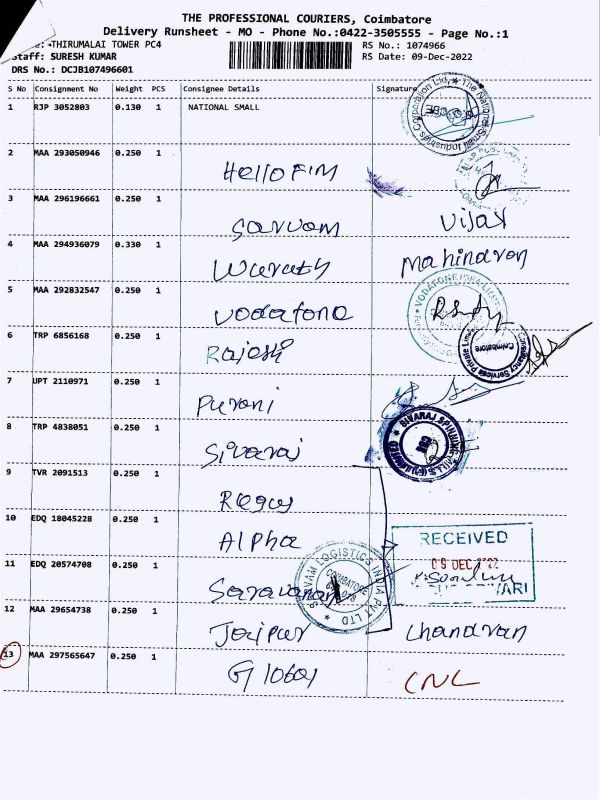 THE PROFESSIONAL COURIERS, Coimbatore
Delivery Runsheet - MO - Phone No.:0422-3505555 - Page No.:1
THIRUMALAI TOWER PC4 RS No.: 1074966
Staff: SURESH KUMAR RS Date: 09-Dec-2022
DRS No.: DCJB107496601
S No Consignment No Weight PCS Consignee Details Signature
1 RJP 3052803 0.130 1 NATIONAL SMALL
The National Small Industries Corporation Ltd,
2 MAA 293050946 0.250 1
3 MAA 296196661 0.250 1 Sarvam Vijay
4 MAA 294936079 0.330 1 Mahindran
5 MAA 292832547 0.250 1 Vodafone
6 TRP 6856168 0.250 1 Rajesh
Coimbatore
7 UPT 2110971 0.250 1
8 TRP 4838051 0.250 1 Sivaraj
SIVARAJ SPINNING MILLS
9 TVR 2091513 0.250 1
10 EDQ 18045228 0.250 1 Alpha
RECEIVED
09 DEC 2022
11 EDQ 20574708 0.250 1 Saravanan
SARVAM LOGISTICS INDIA PVT LTD
COIMBATORE
12 MAA 29654738 0.250 1 Jaipur Chandran
13 MAA 297565647 0.250 1 Global CNL